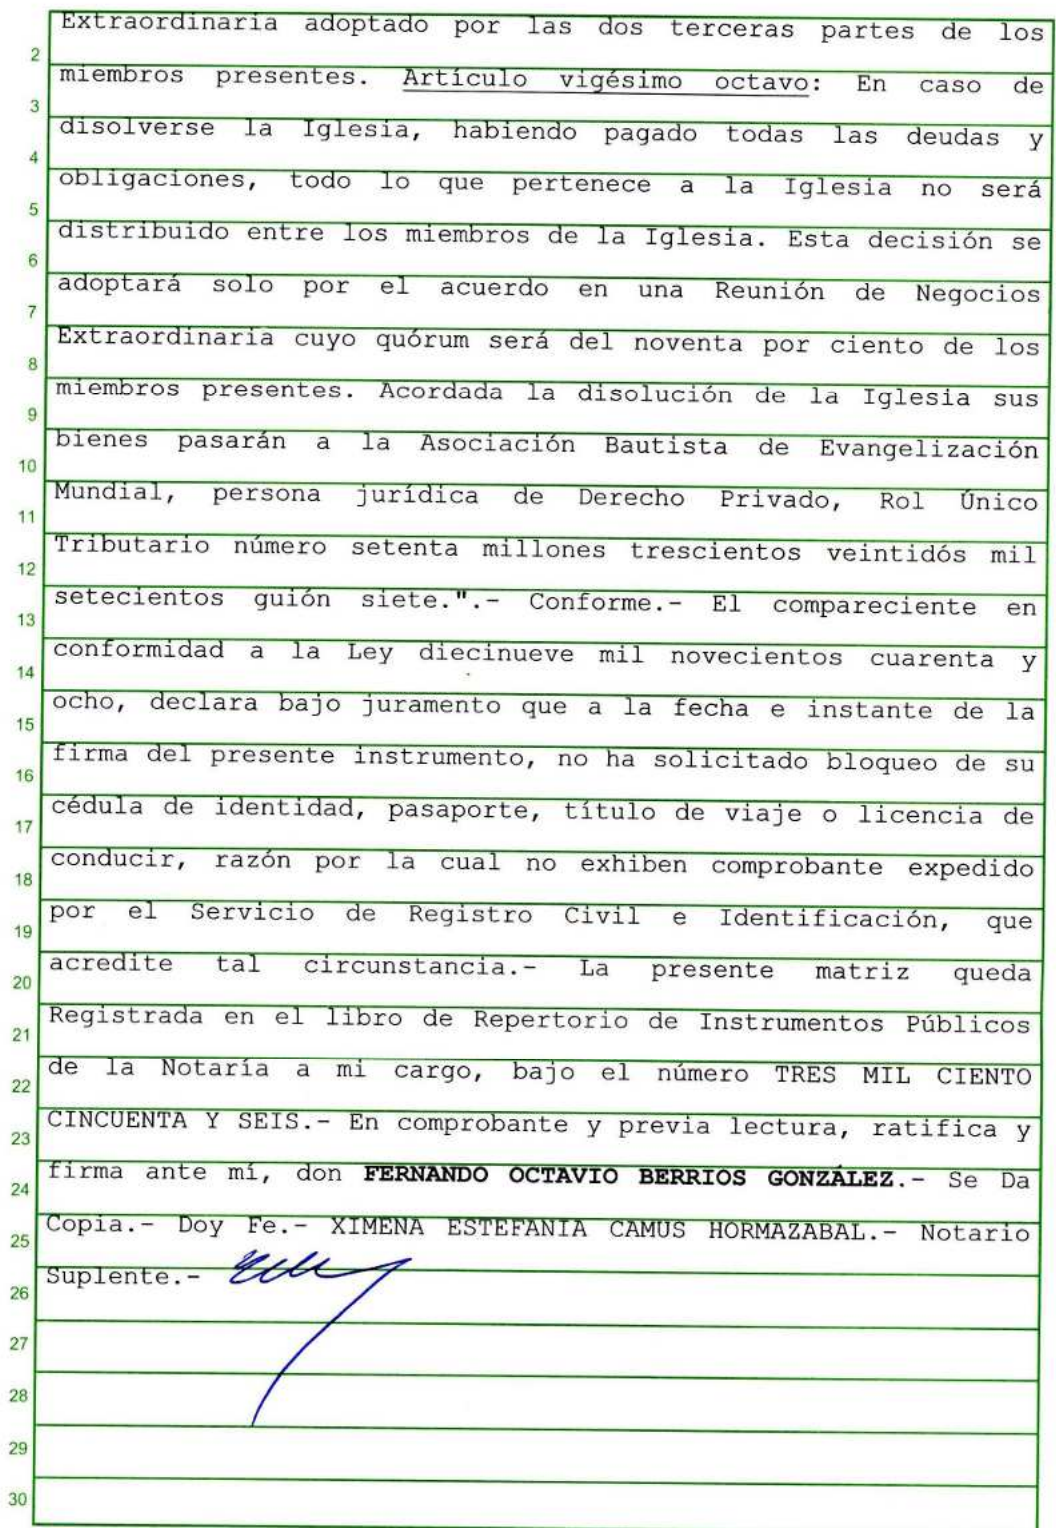 Extraordinaria adoptado por las dos terceras partes de los
2
miembros presentes. Artículo vigésimo octavo: En caso de
3
disolverse la Iglesia, habiendo pagado todas las deudas y
4
obligaciones, todo lo que pertenece a la Iglesia no será
5
distribuido entre los miembros de la Iglesia. Esta decisión se
6
adoptará solo por el acuerdo en una Reunión de Negocios
7
Extraordinaria cuyo quórum será del noventa por ciento de los
8
miembros presentes. Acordada la disolución de la Iglesia sus
9
bienes pasarán a la Asociación Bautista de Evangelización
10
Mundial, persona jurídica de Derecho Privado, Rol Único
11
Tributario número setenta millones trescientos veintidós mil
12
setecientos guión siete.".- Conforme.- El compareciente en
13
conformidad a la Ley diecinueve mil novecientos cuarenta y
14
ocho, declara bajo juramento que a la fecha e instante de la
15
firma del presente instrumento, no ha solicitado bloqueo de su
16
cédula de identidad, pasaporte, título de viaje o licencia de
17
conducir, razón por la cual no exhiben comprobante expedido
18
por el Servicio de Registro Civil e Identificación, que
19
acredite tal circunstancia.- La presente matriz queda
20
Registrada en el libro de Repertorio de Instrumentos Públicos
21
de la Notaría a mi cargo, bajo el número TRES MIL CIENTO
22
CINCUENTA Y SEIS.- En comprobante y previa lectura, ratifica y
23
firma ante mí, don FERNANDO OCTAVIO BERRIOS GONZÁLEZ.- Se Da
24
Copia.- Doy Fe.- XIMENA ESTEFANIA CAMUS HORMAZABAL.- Notario
25
Suplente.-
26
27
28
29
30